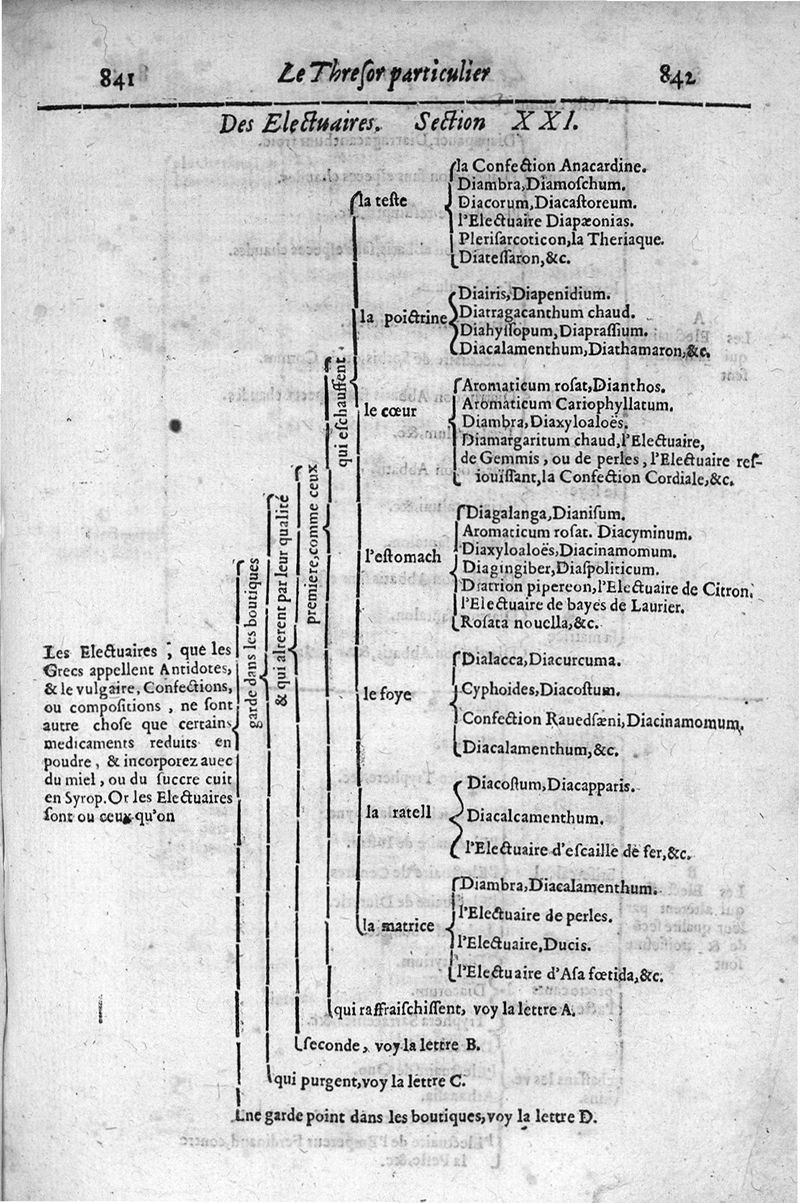 841
Le Threſor particulier
842
Des Electuaires. Section XXI.
Les Electuaires ; que les
Grecs appellent Antidotes,
& le vulgaire, Confections,
ou compoſitions , ne ſont
autre choſe que certains
medicaments reduits en
poudre , & incorporez auec
du miel, ou du ſuccre cuit
en Syrop. Or les Electuaires
ſont ou ceux qu'on
garde dans les boutiques
& qui alterent par leur qualité
premiere, comme ceux
qui eſchauffent
la teſte
la Confection Anacardine.
Diambra, Diamoſchum.
Diacorum, Diacaſtoreum.
l'Electuaire Diapæonias.
Pleriſarcoticon, la Theriaque.
Diateſſaron, &c.
la poictrine
Diairis, Diapenidium.
Diatragacanthum chaud.
Diahyſſopum, Diapraſſium.
Diacalamenthum, Diathamaron, &c.
le cœur
Aromaticum roſat, Dianthos.
Aromaticum Cariophyllatum.
Diambra, Diaxyloaloës.
Diamargaritum chaud, l'Electuaire,
de Gemmis, ou de perles, l'Electuaire reſ-
iouïſſant, la Confection Cordiale, &c.
l'eſtomach
Diagalanga, Dianiſum.
Aromaticum roſat. Diacyminum.
Diaxyloaloës, Diacinamomum.
Diagingiber, Diaſpoliticum.
Diatrion pipereon, l'Electuaire de Citron.
l'Electuaire de bayes de Laurier.
Roſata nouella, &c.
le foye
Dialacca, Diacurcuma.
Cyphoides, Diacoſtum.
Confection Rauedſæni, Diacinamomum.
Diacalamenthum, &c.
la ratell
Diacoſtum, Diacapparis.
Diacalcamenthum.
l'Electuaire d'eſcaille de fer, &c.
la matrice
Diambra, Diacalamenthum.
l'Electuaire de perles.
l'Electuaire, Ducis.
l'Electuaire d'Aſa fœtida, &c.
qui raffraiſchiſſent, voy la lettre A.
ſeconde, voy la lettre B.
qui purgent, voy la lettre C.
ne garde point dans les boutiques, voy la lettre D.